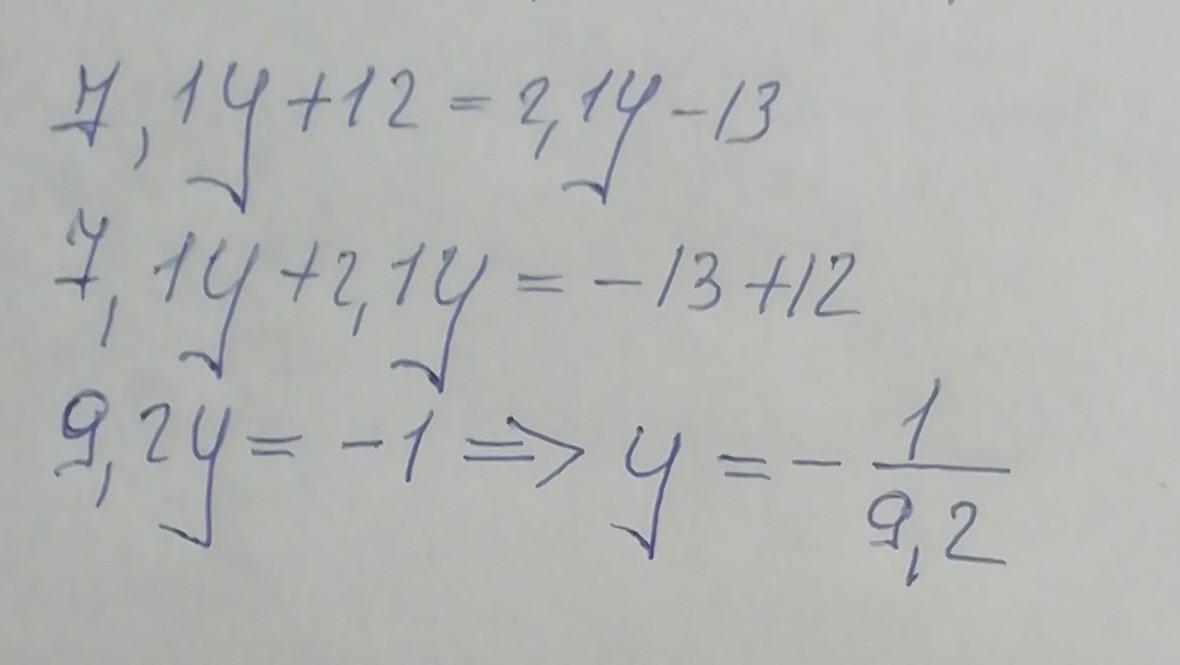 7,1y+12=2,1y-13
7,1y+2,1y=-13+12
9,2y=-1=>y=-1/9,2